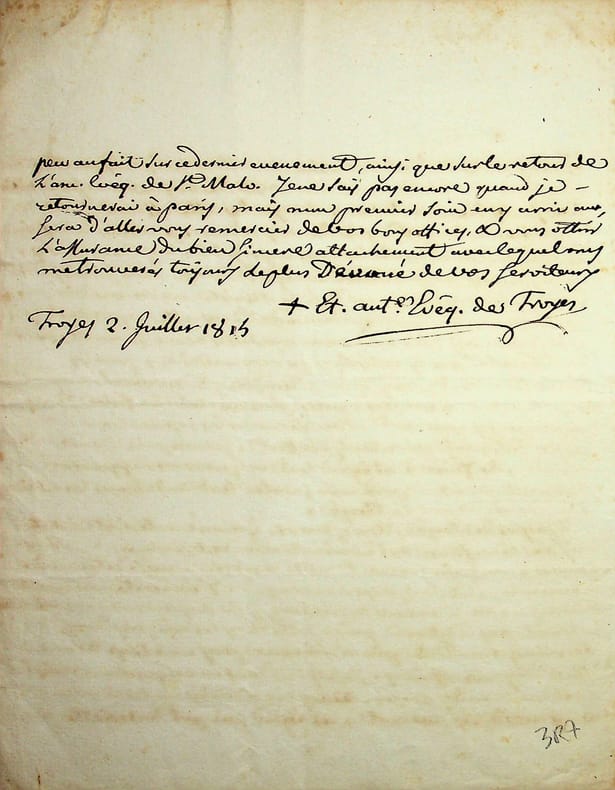 peu au fait sur ce dernier evenement, ainsi que sur le retour de
L'anc. Evêq. de St. Malo. Je ne sais pas encore quand je –
retournerai à paris, mais mon premier soin en y arrivant
sera d'aller vous remercier de vos bons offices, & vous offrir
L'assurance du bien sincere attachement avec lequel vous
me trouveres toujours le plus Devoué de vos serviteurs
+ Et. ant. Evêq. de Troyes
Troyes 2. Juillet 1815
387